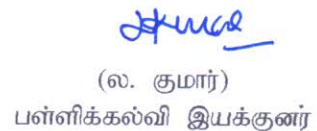 (ல. குமார்)
பள்ளிக்கல்வி இயக்குனர்